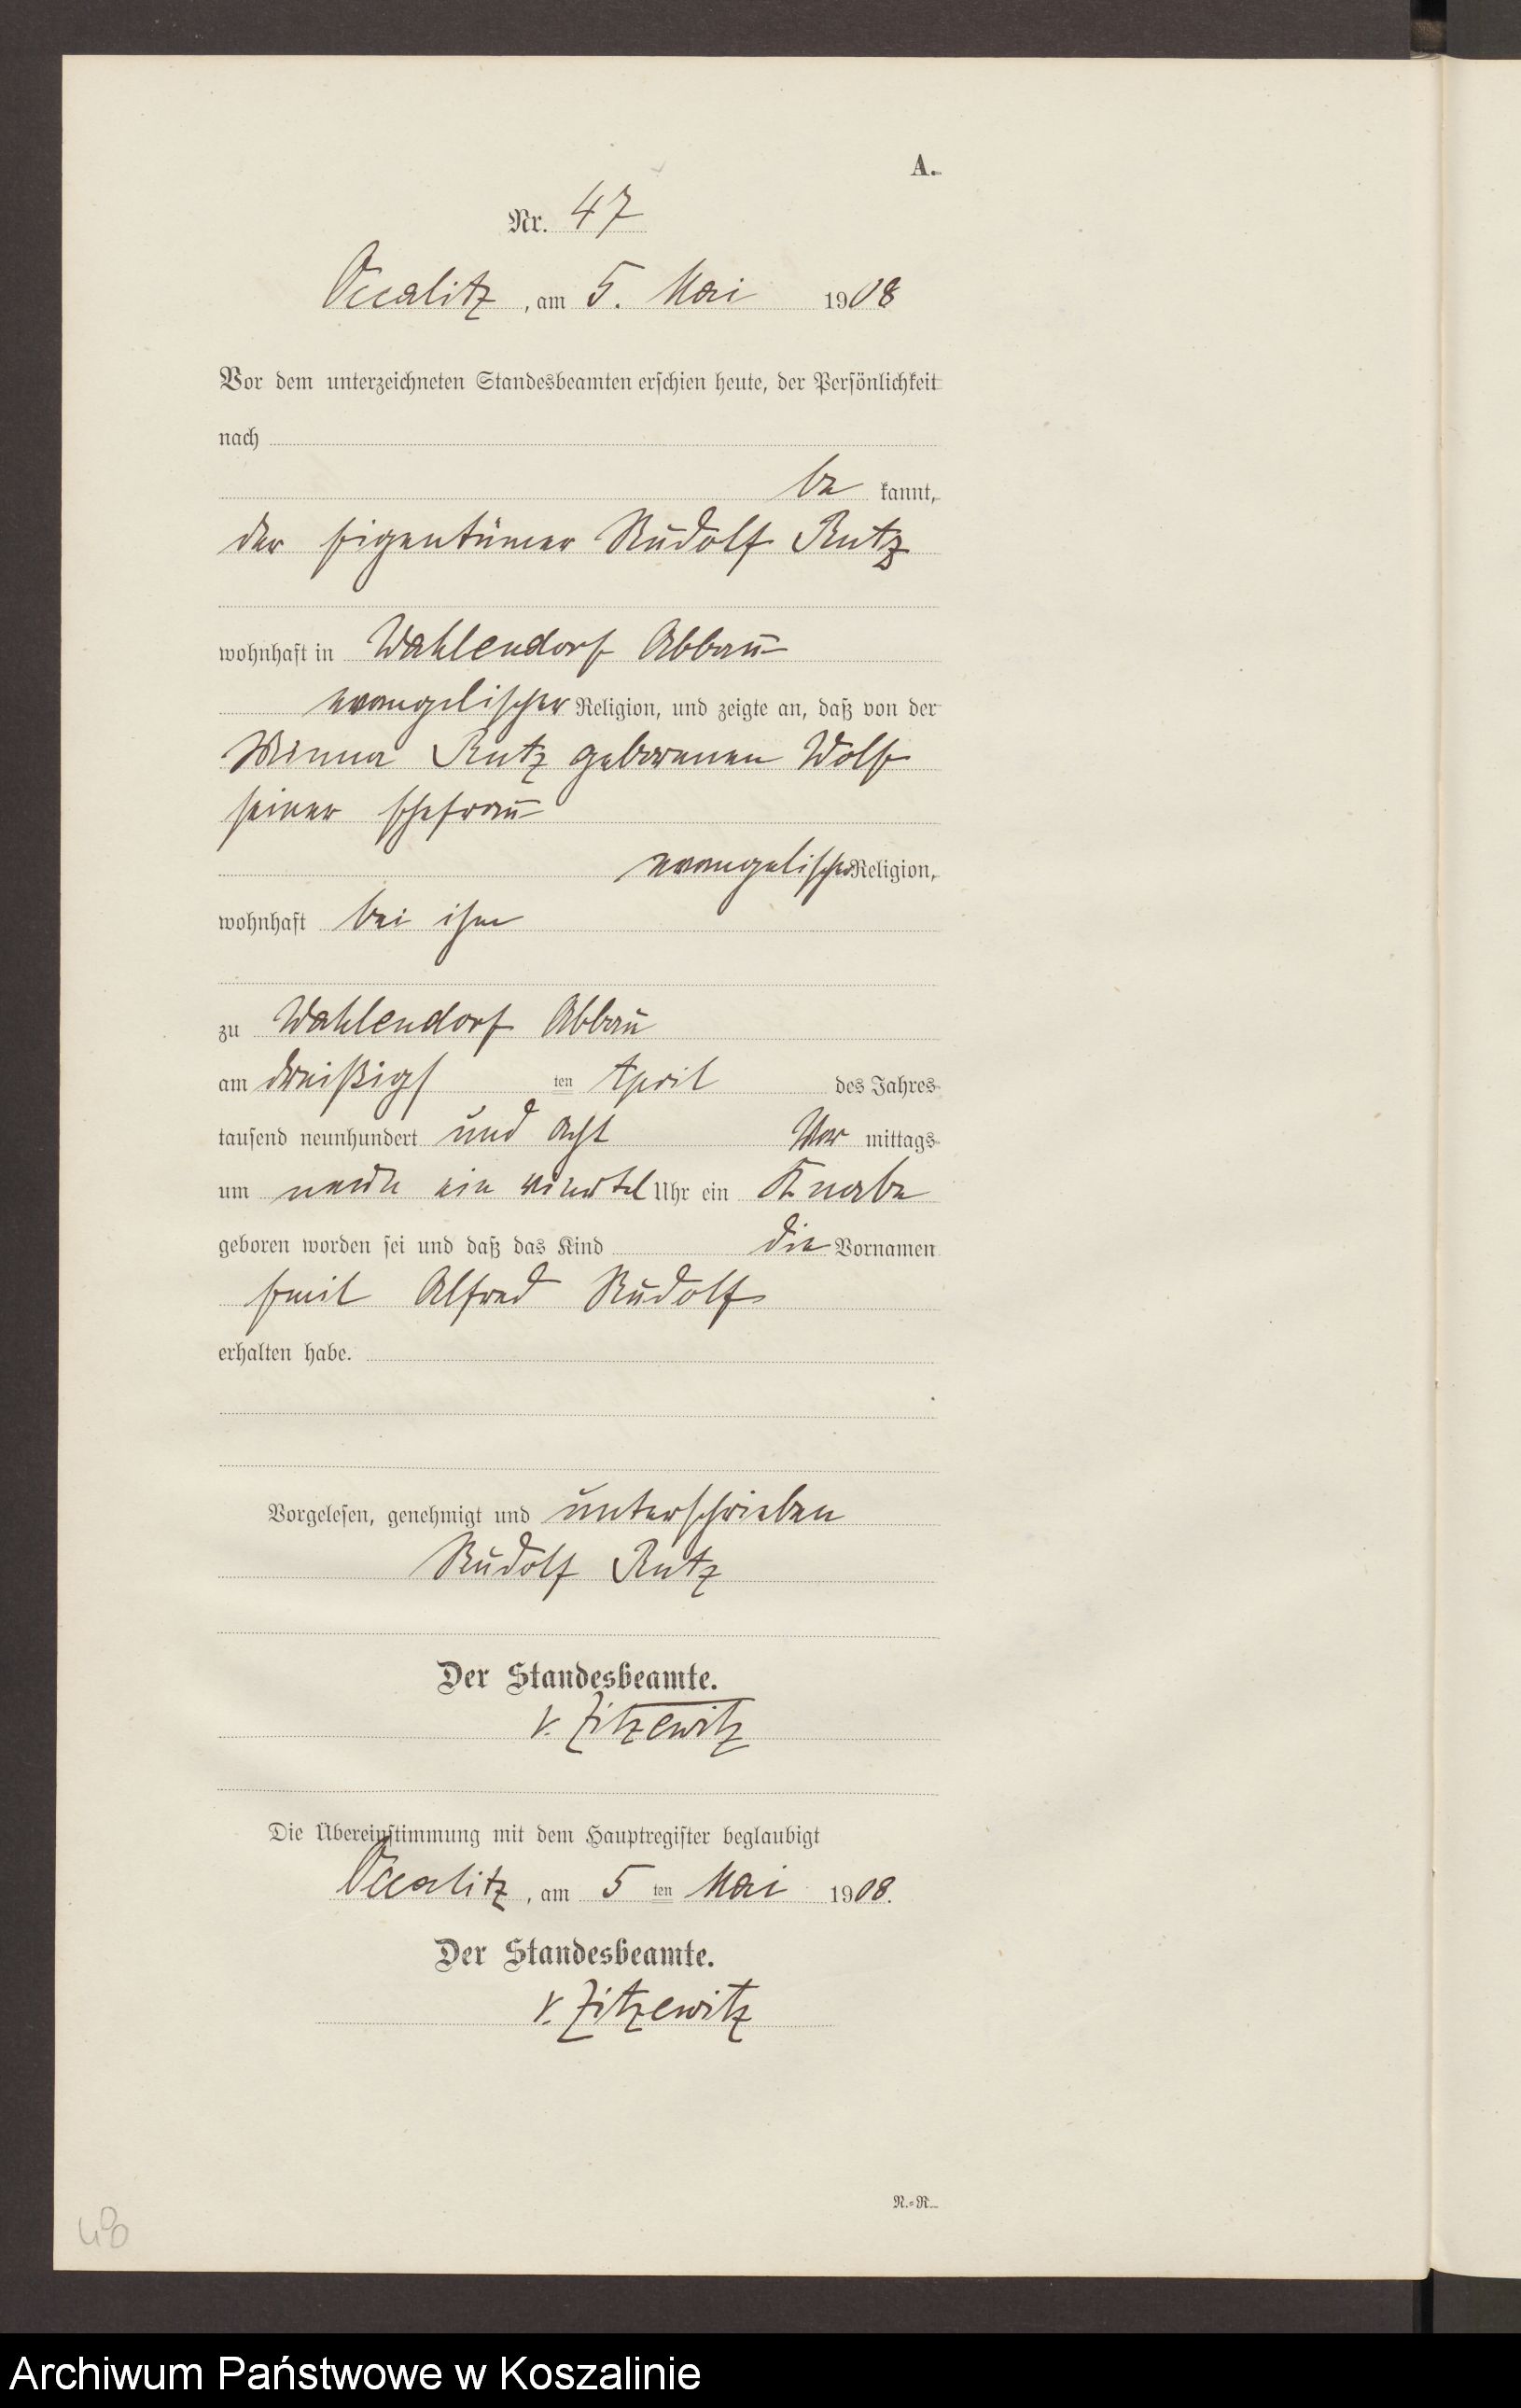 A.
Nr. 47
Occalitz, am 5. Mai 1908
Vor dem unterzeichneten Standesbeamten erschien heute, der Persönlichkeit
nach
be kannt,
der Eigentümer Rudolf Rutz
wohnhaft in Wahlendorf Abbau
evangelischer Religion, und zeigte an, daß von der
Minna Rutz geborenen Wolf
seiner Ehefrau
evangelischer Religion,
wohnhaft bei ihm
zu Wahlendorf Abbau
am dreißigsten April des Jahres
tausend neunhundert und acht Vor mittags
um neun ein viertel Uhr ein Knabe
geboren worden sei und daß das Kind die Vornamen
Emil Alfred Rudolf
erhalten habe.
Vorgelesen, genehmigt und unterschrieben
Rudolf Rutz
Der Standesbeamte.
v. Zitzewitz
Die Übereinstimmung mit dem Hauptregister beglaubigt
Occalitz, am 5 ten Mai 1908.
Der Standesbeamte.
v. Zitzewitz
N.=R.
Archiwum Państwowe w Koszalinie